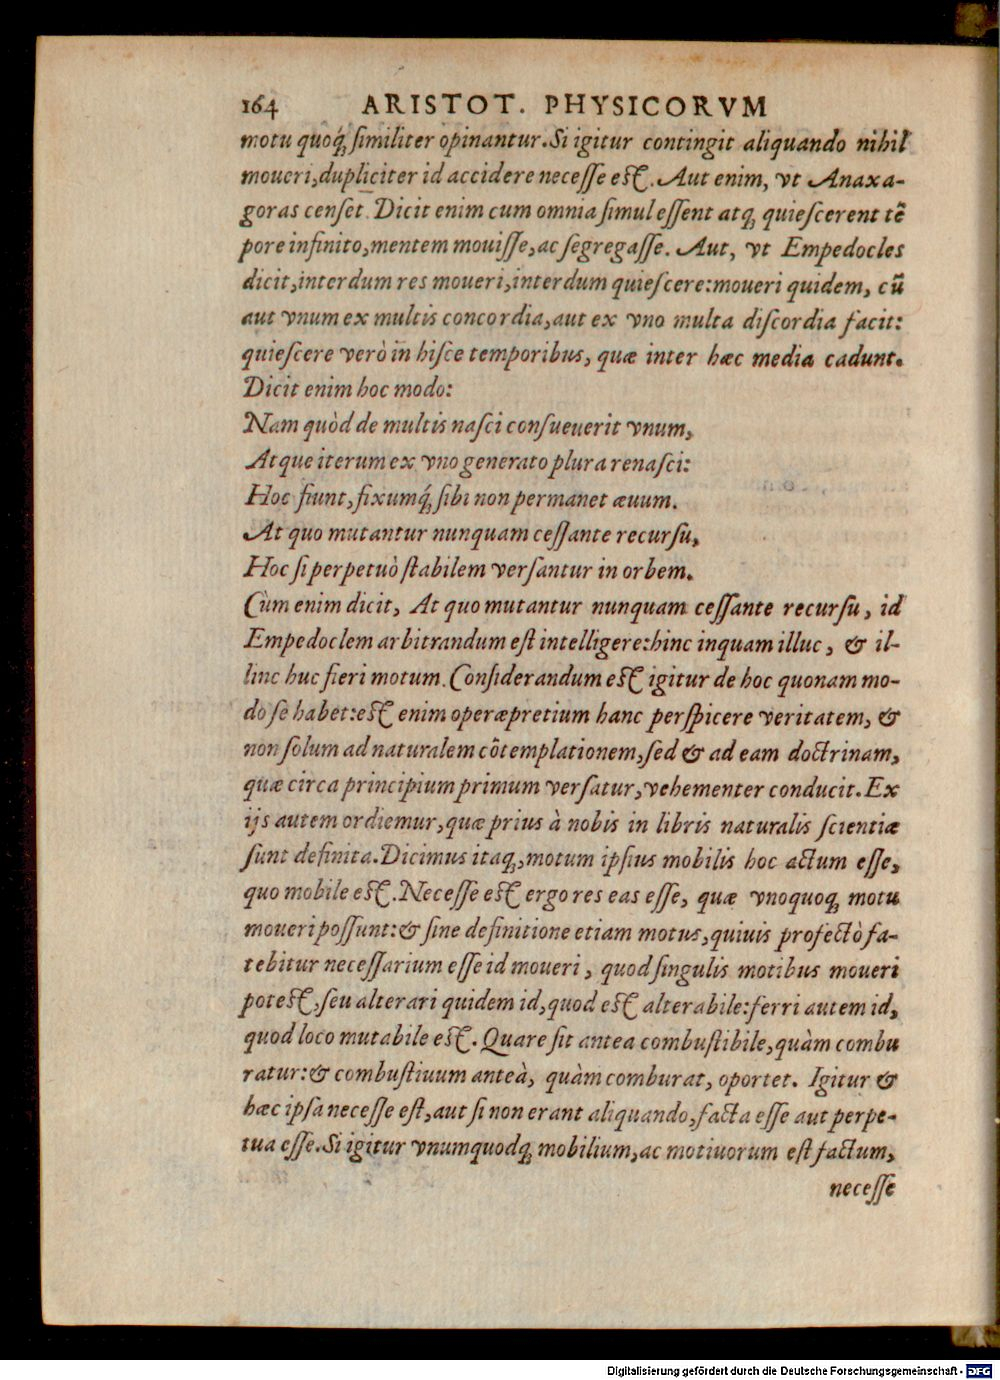 164 ARISTOT. PHYSICORVM
motu quoq́ꝫ ſimiliter opinantur. Si igitur contingit aliquando nihil
moueri, dupliciter id accidere neceſſe eſt. Aut enim, vt Anaxa-
goras cenſet. Dicit enim cum omnia ſimul eſſent atqꝫ quieſcerent tẽ
pore infinito, mentem mouiſſe, ac ſegregaſſe. Aut, vt Empedocles
dicit, interdum res moueri, interdum quieſcere: moueri quidem, cũ
aut vnum ex multis concordia, aut ex vno multa diſcordia facit:
quieſcere verò in hiſce temporibus, quæ inter hæc media cadunt.
Dicit enim hoc modo:
Nam quòd de multis naſci conſueuerit vnum,
Atque iterum ex vno generato plura renaſci:
Hoc fiunt, fixumq́ꝫ ſibi non permanet æuum.
At quo mutantur nunquam ceſſante recurſu,
Hoc ſi perpetuò ſtabilem verſantur in orbem.
Cùm enim dicit, At quo mutantur nunquam ceſſante recurſu, id
Empedoclem arbitrandum eſt intelligere: hinc inquam illuc, & il-
linc huc fieri motum. Conſiderandum eſt igitur de hoc quonam mo-
do ſe habet: eſt enim operæpretium hanc perſpicere veritatem, &
non ſolum ad naturalem cõtemplationem, ſed & ad eam doctrinam,
quæ circa principium primum verſatur, vehementer conducit. Ex
ijs autem ordiemur, quæ prius à nobis in libris naturalis ſcientiæ
ſunt definita. Dicimus itaqꝫ, motum ipſius mobilis hoc actum eſſe,
quo mobile eſt. Neceſſe eſt ergo res eas eſſe, quæ vnoquoqꝫ motu
moueri poſſunt: & ſine definitione etiam motus, quiuis profectò fa-
tebitur neceſſarium eſſe id moueri, quod ſingulis motibus moueri
poteſt, ſeu alterari quidem id, quod eſt alterabile: ferri autem id,
quod loco mutabile eſt. Quare ſit antea combuſtibile, quàm combu
ratur: & combuſtiuum anteà, quàm comburat, oportet. Igitur &
hæc ipſa neceſſe eſt, aut ſi non erant aliquando, facta eſſe aut perpe-
tua eſſe. Si igitur vnumquodqꝫ mobilium, ac motiuorum eſt factum,
neceſſe
Digitalisierung gefördert durch die Deutsche Forschungsgemeinschaft - DFG